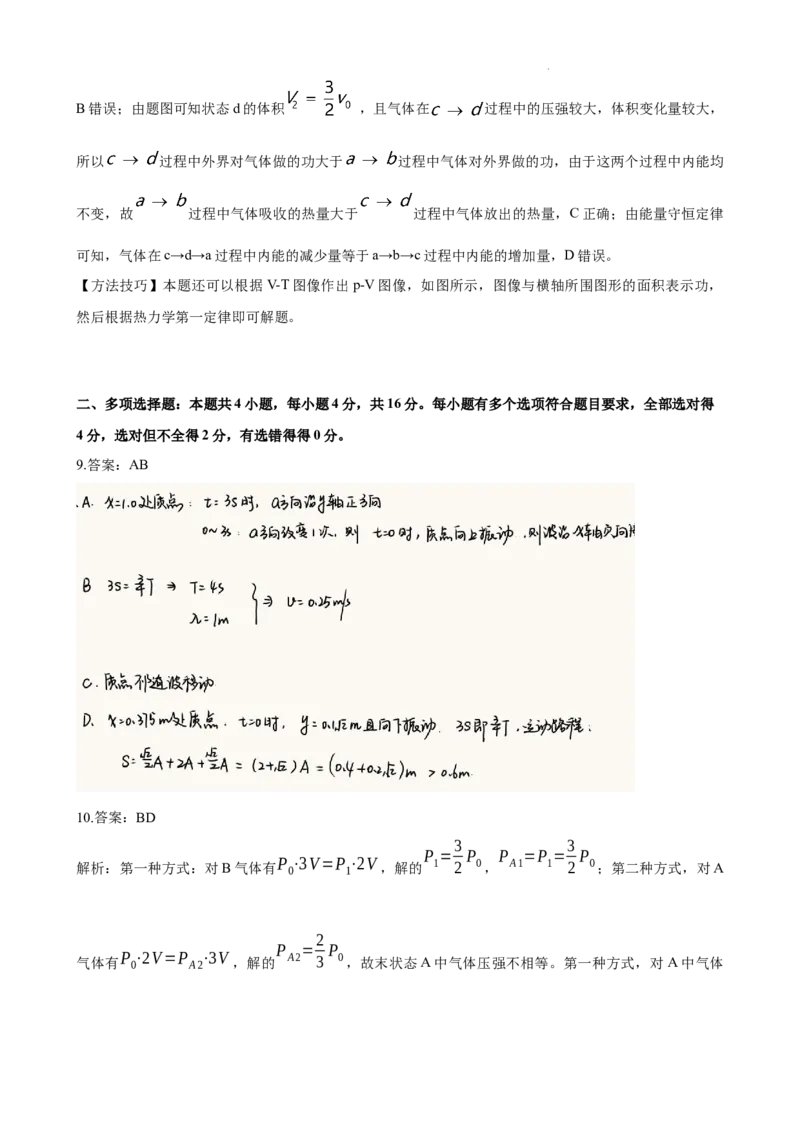 B错误；由题图可知状态d的体积 V₂ = 3/2 v₀ ，且气体在c → d过程中的压强较大，体积变化量较大，
所以c → d过程中外界对气体做的功大于a → b过程中气体对外界做的功，由于这两个过程中内能均
不变，故a → b过程中气体吸收的热量大于c → d过程中气体放出的热量，C正确；由能量守恒定律
可知，气体在c→d→a过程中内能的减少量等于a→b→c过程中内能的增加量，D错误。
【方法技巧】本题还可以根据V-T图像作出p-V图像，如图所示，图像与横轴所围图形的面积表示功，
然后根据热力学第一定律即可解题。
二、多项选择题：本题共4小题，每小题4分，共16分。每小题有多个选项符合题目要求，全部选对得
4分，选对但不全得2分，有选错得得0分。
9.答案：AB
.A. x=1.0处质点：t=3s时，a方向沿y轴正方向
0~3s：a方向改变1次，则 t=0时，质点向上振动，则波沿x轴负向
B 3s=3/4T ⇒ T=4s
λ=1m } ⇒ v=0.25m/s
C. 质点不随波移动
D. x=0.375m处质点. t=0时, y=0.1√2m且向下振动. 3s即3/4T,运动路程:
S=√2/2A+2A+√2/2A=(2+√2)A=(0.4+0.2√2)m>0.6m.
10.答案：BD
解析：第一种方式：对B气体有P₀·3V=P₁·2V，解的P₁=3/2P₀，P_A1=P₁=3/2P₀；第二种方式，对A
气体有P₀·2V=P_A2·3V，解的P_A2=2/3P₀，故末状态A中气体压强不相等。第一种方式，对A中气体